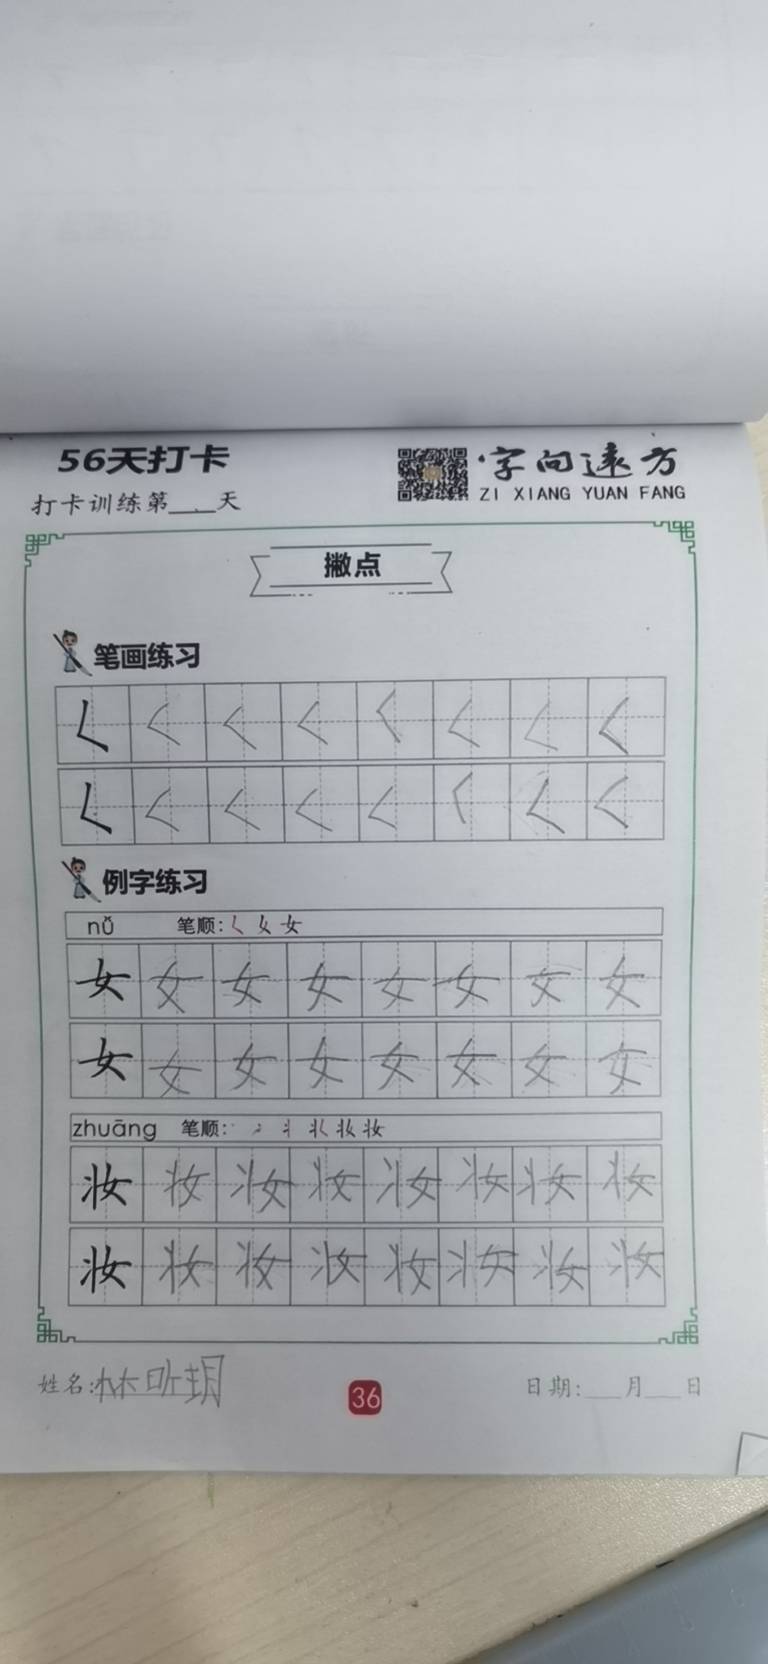 56天打卡
字向远方
打卡训练第___天
ZI XIANG YUAN FANG
撇点
笔画练习
𡿨 𡿨 𡿨 𡿨 𡿨 𡿨 𡿨 𡿨
𡿨 𡿨 𡿨 𡿨 𡿨 𡿨 𡿨 𡿨
例字练习
nǚ 笔顺:𡿨 女
女 女 女 女 女 女 女 女
女 女 女 女 女 女 女 女
zhuāng 笔顺: 妆
妆 妆 妆 妆 妆 妆 妆 妆
妆 妆 妆 妆 妆 妆 妆 妆
姓名:林昕玥
36
日期:___月___日